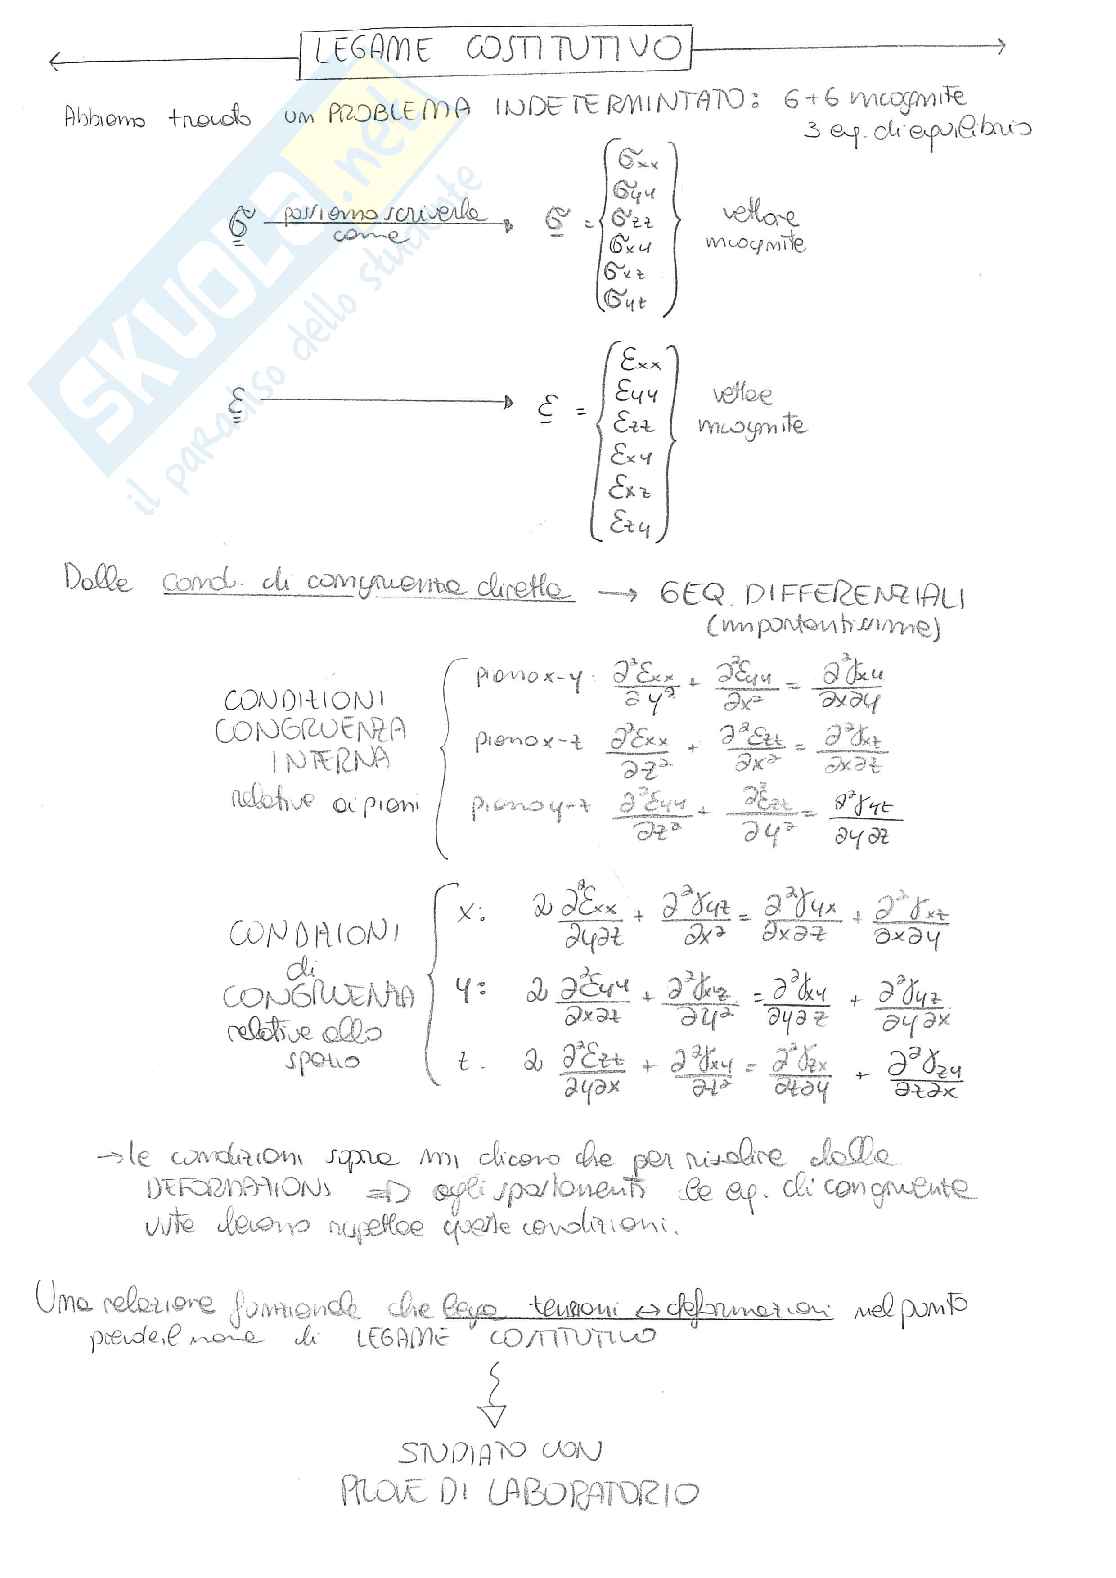 LEGAME COSTITUTIVO
Abbiamo trovato un PROBLEMA INDETERMINTATO: 6+6 incognite
3 eq. di equilibrio
σ possiamo scriverla come → σ = {σxx σyy σzz σxy σxz σyz} vettore incognite
ε → ε = {εxx εyy εzz εxy εxz εzy} vettore incognite
Dalle cond. di congruenza diretta → 6 EQ. DIFFERENZIALI
(importantissime)
CONDIZIONI CONGRUENZA INTERNA relative ai piani
piano x-y: ∂²εxx/∂y² + ∂²εyy/∂x² = ∂²γxy/∂x∂y
piano x-z ∂²εxx/∂z² + ∂²εzz/∂x² = ∂²γxz/∂x∂z
piano y-z ∂²εyy/∂z² + ∂²εzz/∂y² = ∂²γyz/∂y∂z
CONDIZIONI di CONGRUENZA relative allo spazio
x: 2 ∂²εxx/∂y∂z + ∂²γyz/∂x² = ∂²γyx/∂x∂z + ∂²γxz/∂x∂y
y: 2 ∂²εyy/∂x∂z + ∂²γxz/∂y² = ∂²γxy/∂y∂z + ∂²γyz/∂y∂x
z. 2 ∂²εzz/∂y∂x + ∂²γxy/∂z² = ∂²γzx/∂z∂y + ∂²γzy/∂z∂x
→ le condizioni sopra mi dicono che per risalire dalle
DEFORMAZIONI ⇒ agli spostamenti le eq. di congruenza
viste devono rispettare queste condizioni.
Una relazione funzionale che lega tensioni ↔ deformazioni nel punto
prende il nome di LEGAME COSTITUTIVO
STUDIATO CON
PROVE DI LABORATORIO
SKUOLA.net
il paradiso dello studente